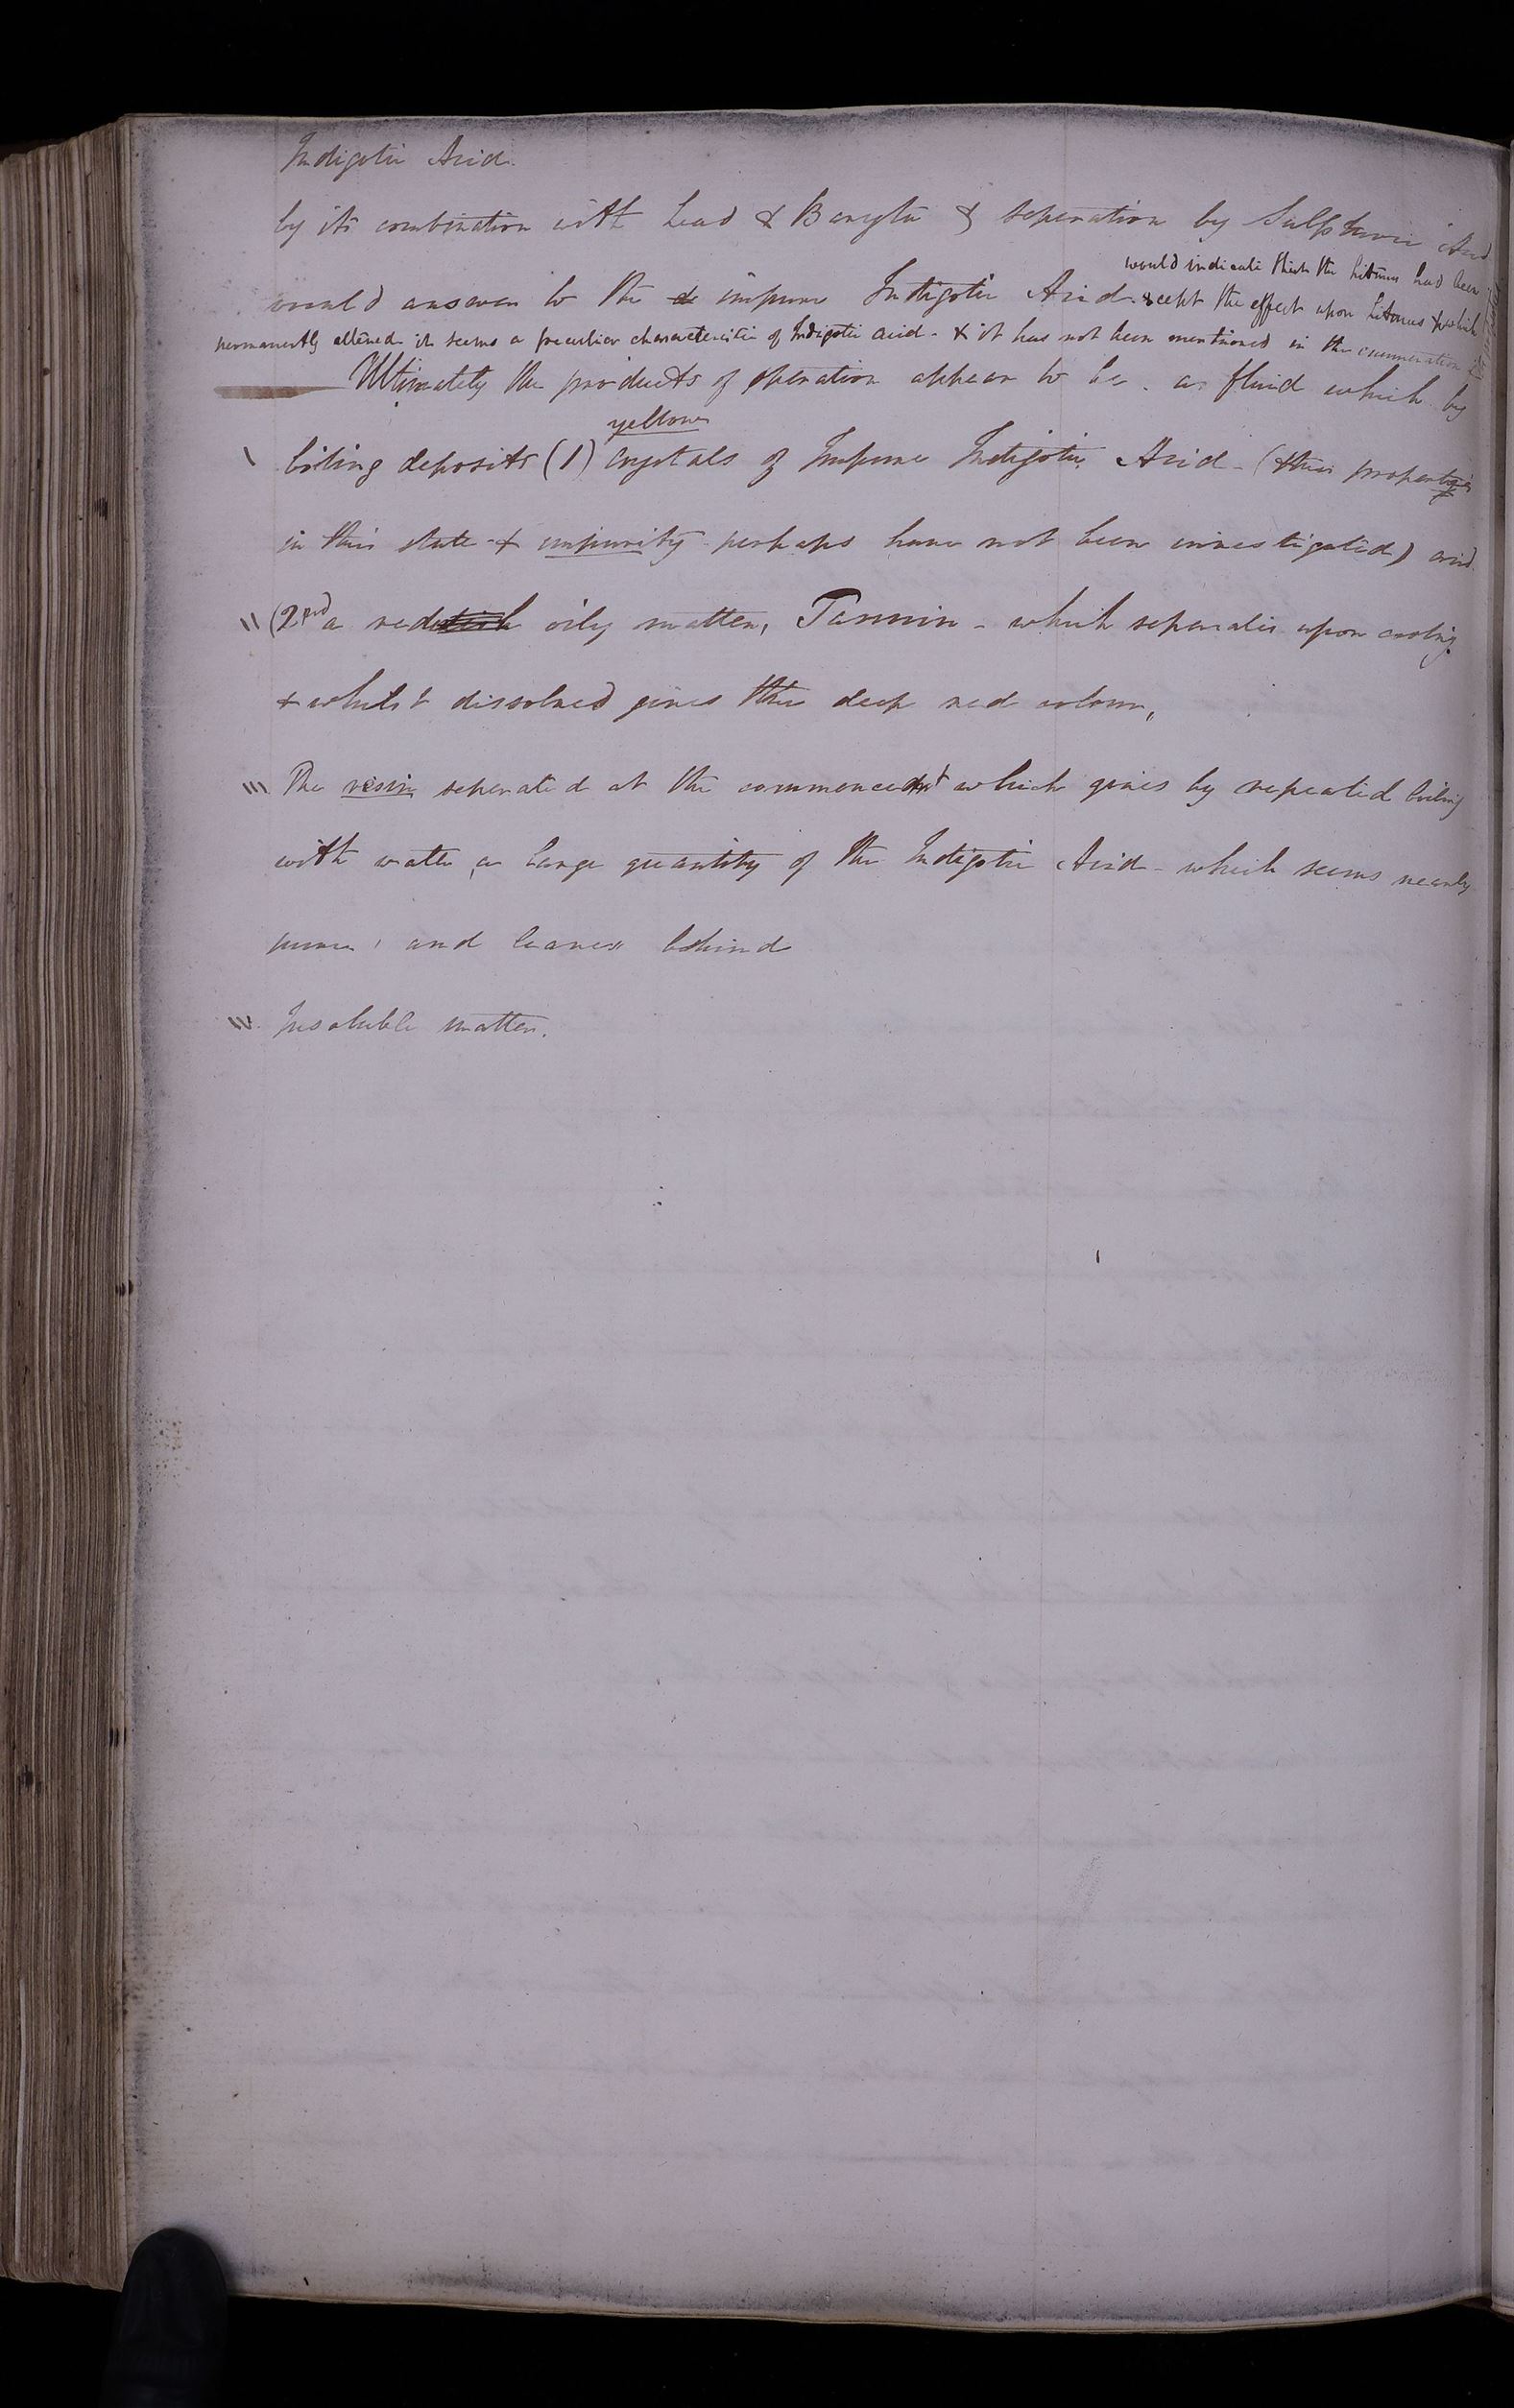 Indigotic Acid.
by its combination with Lead & Baryta & seperation by Sulphuric Acid
would indicate that the Litmus had been
would answer to the impure Indigotic Acid. except the effect upon Litmus & which
permanently altered it seems a peculiar characteristic of Indigotic acid - & it has not been mentioned in the enumeration
Ultimately the products of operation appear to be. a fluid which by
yellow
\ boiling deposits (1) crystals of Impure Indigotic Acid - (their properties
in this state & impurity perhaps have not been investigated) and
\\ (2nd a red oily matter, Tannin - which seperates upon cooling.
& whilst dissolved gives the deep red colour,
\\\ The resin seperated at the commencemt which gives by repeated boiling
with water, a large quantity of the Indigotic Acid - which seems nearly
pure, and leaves behind
\V. Insoluble matter.